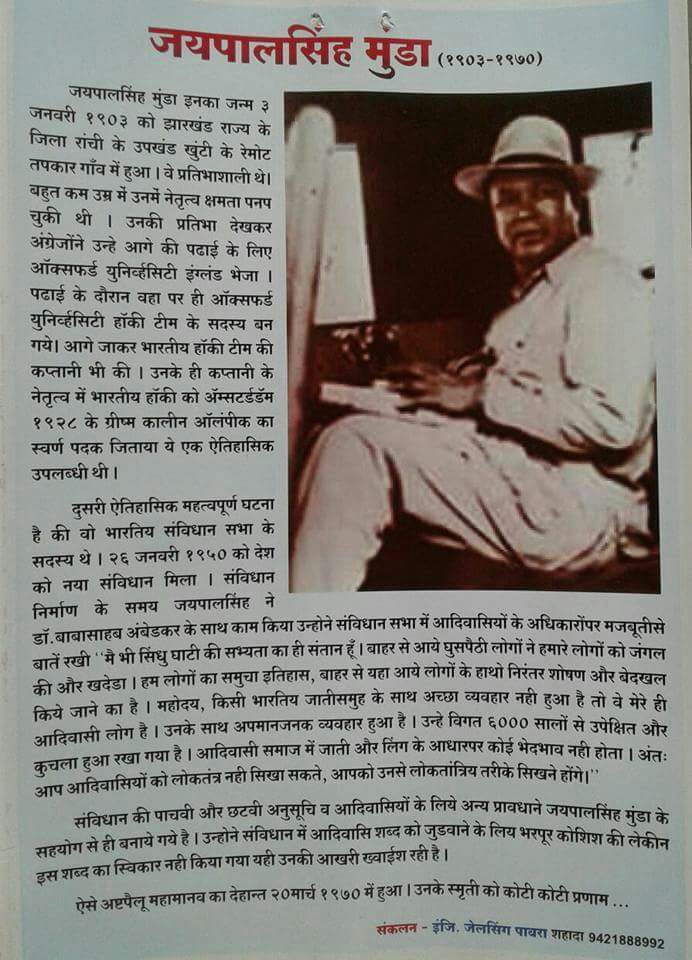 जयपालसिंह मुंडा (१९०३-१९७०)
जयपालसिंह मुंडा इनका जन्म ३
जनवरी १९०३ को झारखंड राज्य के
जिला रांची के उपखंड खुंटी के रेमोट
तपकार गाँव में हुआ । वे प्रतिभाशाली थे।
बहुत कम उम्र में उनमें नेतृत्व क्षमता पनप
चुकी थी । उनकी प्रतिभा देखकर
अंग्रेजोंने उन्हे आगे की पढाई के लिए
ऑक्सफर्ड युनिर्व्हसिटी इंग्लंड भेजा ।
पढाई के दौरान वहा पर ही ऑक्सफर्ड
युनिर्व्हसिटी हॉकी टीम के सदस्य बन
गये। आगे जाकर भारतीय हॉकी टीम की
कप्तानी भी की । उनके ही कप्तानी के
नेतृत्व में भारतीय हॉकी को ॲम्सटर्डडॅम
१९२८ के ग्रीष्म कालीन ऑलंपीक का
स्वर्ण पदक जिताया ये एक ऐतिहासिक
उपलब्धी थी ।
दुसरी ऐतिहासिक महत्वपूर्ण घटना
है की वो भारतिय संविधान सभा के
सदस्य थे । २६ जनवरी १९५० को देश
को नया संविधान मिला । संविधान
निर्माण के समय जयपालसिंह ने
डॉ.बाबासाहब अंबेडकर के साथ काम किया उन्होने संविधान सभा में आदिवासियों के अधिकारोंपर मजबूतीसे
बातें रखी "मै भी सिंधु घाटी की सभ्यता का ही संतान हूँ । बाहर से आये घुसपैठी लोगों ने हमारे लोगों को जंगल
की और खदेडा । हम लोगों का समुचा इतिहास, बाहर से यहा आये लोगों के हाथो निरंतर शोषण और बेदखल
किये जाने का है । महोदय, किसी भारतिय जातीसमुह के साथ अच्छा व्यवहार नही हुआ है तो वे मेरे ही
आदिवासी लोग है । उनके साथ अपमानजनक व्यवहार हुआ है । उन्हे विगत ६००० सालों से उपेक्षित और
कुचला हुआ रखा गया है । आदिवासी समाज में जाती और लिंग के आधारपर कोई भेदभाव नही होता । अंतः
आप आदिवासियों को लोकतंत्र नही सिखा सकते, आपको उनसे लोकतांत्रिय तरीके सिखने होंगे।"
संविधान की पाचवी और छटवी अनुसूचि व आदिवासियों के लिये अन्य प्रावधाने जयपालसिंह मुंडा के
सहयोग से ही बनाये गये है । उन्होने संविधान में आदिवासि शब्द को जुडवाने के लिय भरपूर कोशिश की लेकीन
इस शब्द का स्विकार नही किया गया यही उनकी आखरी ख्वाईश रही है ।
ऐसे अष्टपैलू महामानव का देहान्त २०मार्च १९७० में हुआ । उनके स्मृती को कोटी कोटी प्रणाम ...
संकलन - इंजि. जेलसिंग पावरा शहादा 9421888992